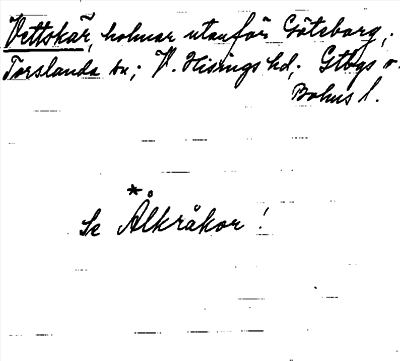 Vettskär, holmar utanför Göteborg,
Torslanda sn; V. Hisings hd; Gtbgs o.
Bohus l.
*
Se Ålkråkor!